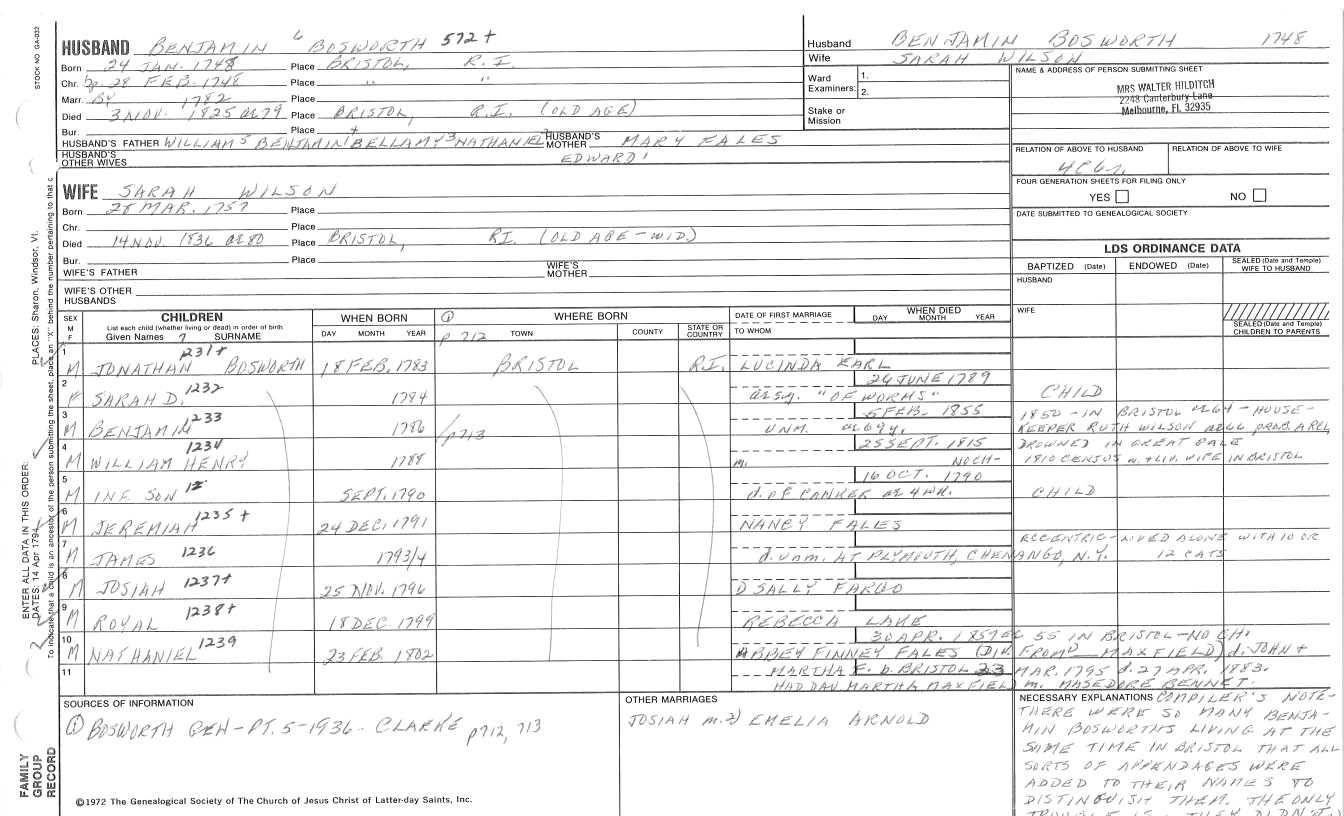 STOCK NO GA-032
HUSBAND BENJAMIN 6 BOSWORTH 572+
Born 24 JAN. 1748 Place BRISTOL, R.I.
Chr. bp. 28 FEB. 1748 Place " "
Marr. By 1782 Place
Died 3 NOV. 1825 ae 79 Place BRISTOL, R.I. (OLD AGE)
Bur. Place
HUSBAND'S FATHER WILLIAM 5 BENJAMIN 4 BELLAMY 3 NATHANIEL 2 HUSBAND'S MOTHER MARY FALES
HUSBAND'S OTHER WIVES EDWARD 1
Husband BENJAMIN BOSWORTH 1748
Wife SARAH WILSON
Ward Examiners: 1.
2.
Stake or Mission
NAME & ADDRESS OF PERSON SUBMITTING SHEET
MRS WALTER HILDITCH
2248 Canterbury Lane
Melbourne, FL 32935
RELATION OF ABOVE TO HUSBAND RELATION OF ABOVE TO WIFE
FOUR GENERATION SHEETS FOR FILING ONLY
YES NO
DATE SUBMITTED TO GENEALOGICAL SOCIETY
WIFE SARAH WILSON
Born 28 MAR. 1757 Place
Chr. Place
Died 14 NOV. 1836 ae 80 Place BRISTOL, R.I. (OLD AGE - WID.)
Bur. Place
WIFE'S FATHER WIFE'S MOTHER
WIFE'S OTHER HUSBANDS
LDS ORDINANCE DATA
BAPTIZED (Date) ENDOWED (Date) SEALED (Date and Temple) WIFE TO HUSBAND
HUSBAND
WIFE
SEALED (Date and Temple) CHILDREN TO PARENTS
SEX M F CHILDREN WHEN BORN ① WHERE BORN DATE OF FIRST MARRIAGE WHEN DIED
List each child (whether living or dead) in order of birth
Given Names 7 SURNAME DAY MONTH YEAR p 712 TOWN COUNTY STATE OR COUNTRY TO WHOM DAY MONTH YEAR
1 M JONATHAN 1231+ BOSWORTH 18 FEB. 1783 BRISTOL R.I. LUCINDA EARL
2 F SARAH D. 1232 1784 24 JUNE 1789 ae 5y. "OF WORMS" CHILD
3 M BENJAMIN 1233 1786 p713 5 FEB. 1855 UNM. ae 69y. 1850 - IN BRISTOL ae 64 - HOUSE-
KEEPER RUTH WILSON ae 66 PROB. A REL.
4 M WILLIAM HENRY 1234 1788 25 SEPT. 1815 DROWNED IN GREAT GALE
m. NO CH- 1810 CENSUS w. + liv. WIFE IN BRISTOL
5 M INF. SON 12 SEPT. 1790 16 OCT. 1790 d. OF CANKER ae 4 WK. CHILD
6 M JEREMIAH 1235+ 24 DEC. 1791 NANCY FALES
7 M JAMES 1236 1793/4 d. unm. AT PLYMOUTH, CHENANGO, N.Y. ECCENTRIC - LIVED ALONE WITH 10 OR
12 CATS
8 M JOSIAH 1237+ 25 NOV. 1796 SALLY FARGO
9 M ROYAL 1238+ 18 DEC 1799 REBECCA LAKE
10 M NATHANIEL 1239 23 FEB. 1802 30 APR. 1857 ae 55 IN BRISTOL - NO CH.
ABBEY FINNEY FALES (DIV. FROM MAXFIELD) d. JOHN +
11 MARTHA F. b. BRISTOL 23 MAR. 1795 d. 27 APR. 1883.
HAD DAU MARTHA MAXFIELD m. MASEDORE BENNET.
SOURCES OF INFORMATION
① BOSWORTH GEN - PT. 5 - 1936 - CLARKE p712, 713
OTHER MARRIAGES
JOSIAH m. 2) EMELIA ARNOLD
NECESSARY EXPLANATIONS COMPILER'S NOTE-
THERE WERE SO MANY BENJA-
MIN BOSWORTHS LIVING AT THE
SAME TIME IN BRISTOL THAT ALL
SORTS OF APPENDAGES WERE
ADDED TO THEIR NAMES TO
DISTINGUISH THEM. THE ONLY
TROUBLE IS, THEY DIDN'T
©1972 The Genealogical Society of The Church of Jesus Christ of Latter-day Saints, Inc.
FAMILY GROUP RECORD
ENTER ALL DATA IN THIS ORDER:
DATES: 14 Apr 1794
PLACES: Sharon, Windsor, Vt.
To indicate that a child is an ancestor of the person submitting the sheet, place an "X" behind the number pertaining to that c